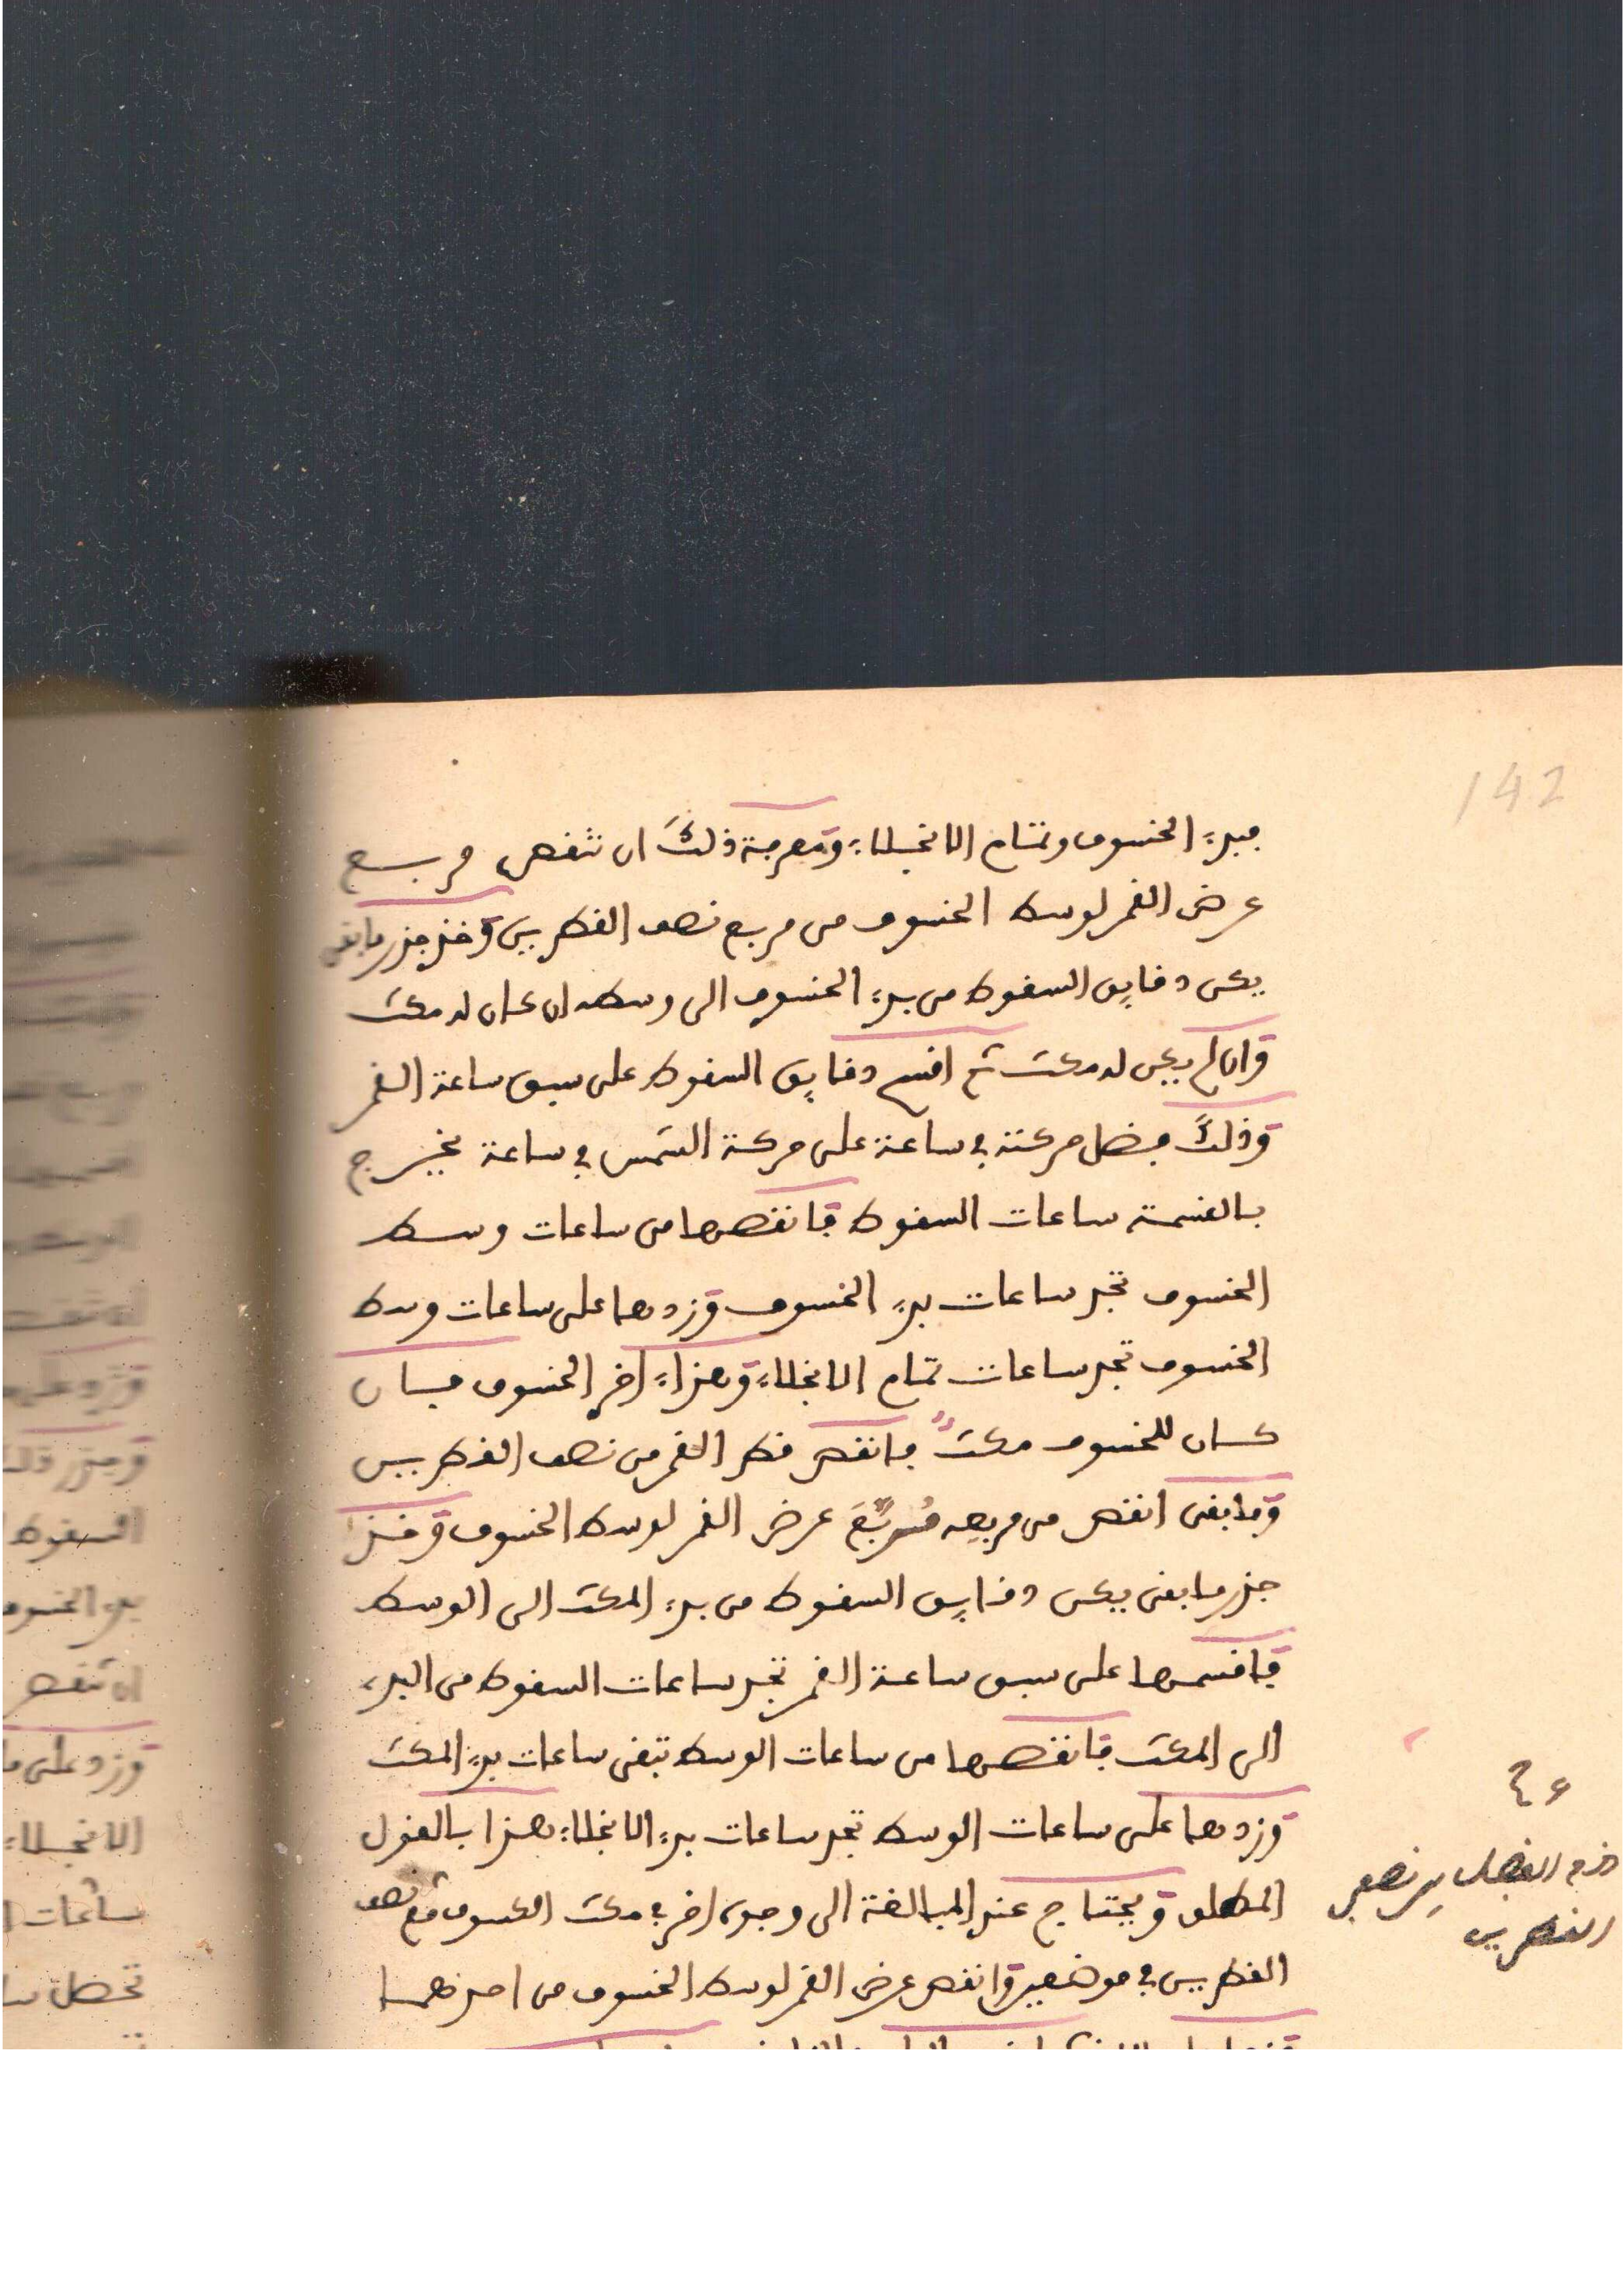 142
فبدء الخسوف وتمام الانجلاء ومعرفة ذلك ان تنقص مربع
عرض القمر لوسط الخسوف من مربع نصف القطرين وخذ جذر ما بقى
يكن دقايق السقوط من بدء الخسوف الى وسطه ان كان له مكث
وان لم يكن له مكث ثم اقسم دقايق السقوط على سبق ساعة القمر
وذلك فضل حركته في ساعة على حركة الشمس في ساعة يخرج
بالقسمة ساعات السقوط فانقصها من ساعات وسط
الخسوف تجد ساعات بدء الخسوف وزدها على ساعات وسط
الخسوف تجد ساعات تمام الانجلاء وهذا اخر الخسوف فان
كان للخسوف مكث فانقص قطر القمر من نصف القطرين
وما بقى انقص من مربعه مربع عرض القمر لوسط الخسوف وخذ
جذر ما بقى يكن دقايق السقوط من بدء المكث الى الوسط
فاقسمها على سبق ساعة القمر تجد ساعات السقوط من البدء
الى المكث فانقصها من ساعات الوسط تبقى ساعات بدء المكث
وزدها على ساعات الوسط تجد ساعات بدء الانجلاء هذا بالقول
المطلق ويحتاج عند المبالغة الى وجه اخر في مكث الكسوف نصف
القطرين في موضعين وانقص عرض القمر لوسط الخسوف من احدهما
الفضل نصف
القطرين